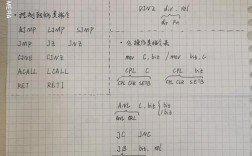 · 控制转移类指令
AJMP LJMP SJMP
JMP JZ JNZ
CJNE DJNZ
ACALL LCALL
RET RETI
DJNZ dir, rel
dir Rn
· 位操作类指令
mov C, bit / mov bit, C
CPL C CPL bit
CPL CLR SETB CPL CLR SETB
ANL C, bit / bit
ANL ORL
JC JNC
JB bit, rel